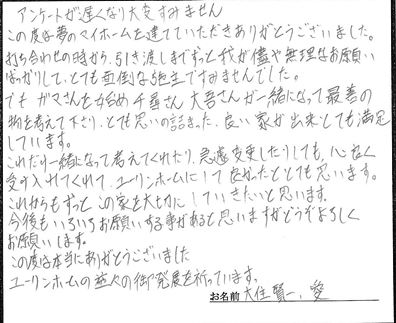 アンケートが遅くなり大変すみません
この度は夢のマイホームを建てていただきありがとうございました。
打ち合わせの時から、引き渡しまでずっと我が儘や無理なお願い
ばっかりして、とても面倒な施主ですみませんでした。
でも ガマさんを始め千尋さん 大吾さんが一緒になって最善の
物を考えて下さり、とても思いの詰まった、良い家が出来とても満足
しています。
これだけ一緒になって考えてくれたり、急遽変更したりしても、心良く
受け入れてくれて、ユーリンホームにして良かったととても思います。
これからもずっとこの家を大切にしていきたいと思います。
今後もいろいろお願いする事があると思いますがどうぞよろしく
お願いします。
この度は本当にありがとうございました
ユーリンホームの益々の御発展を祈っています。
お名前 大住賢一、愛